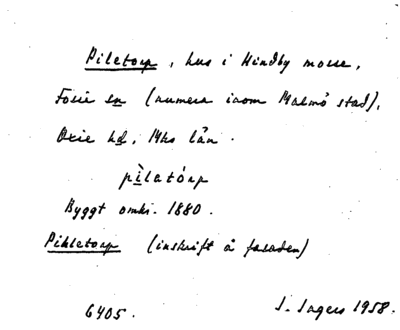 Piletorp, hus i Hindby mosse,
Fosie sn (numera inom Malmö stad),
Oxie hd, Mhs län.
pìlatórp
Byggt omkr. 1880.
Pihletorp (inskrift å fasaden)
6405. J. Sagers 1958.